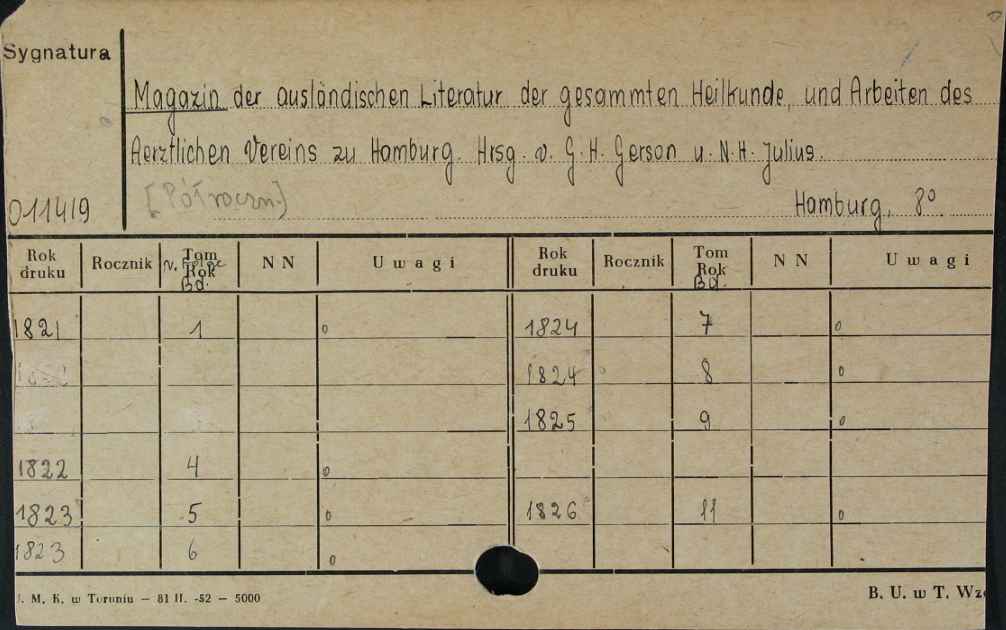 Sygnatura
Magazin der ausländischen Literatur der gesammten Heilkunde, und Arbeiten des
Aerztlichen Vereins zu Hamburg. Hrsg. v. G. H. Gerson u. N. H. Julius.
011419 [Półroczn.] Hamburg, 8°.
Rok druku Rocznik Tom Rok Bd. N N Uwagi Rok druku Rocznik Tom Rok Bd. N N Uwagi
1821 1 o 1824 7 o
1824 8 o
1825 9 o
1822 4 o
1823 5 o 1826 11 o
1823 6 o
M. K. w Toruniu — 81 II. -52 — 5000 B. U. w T.